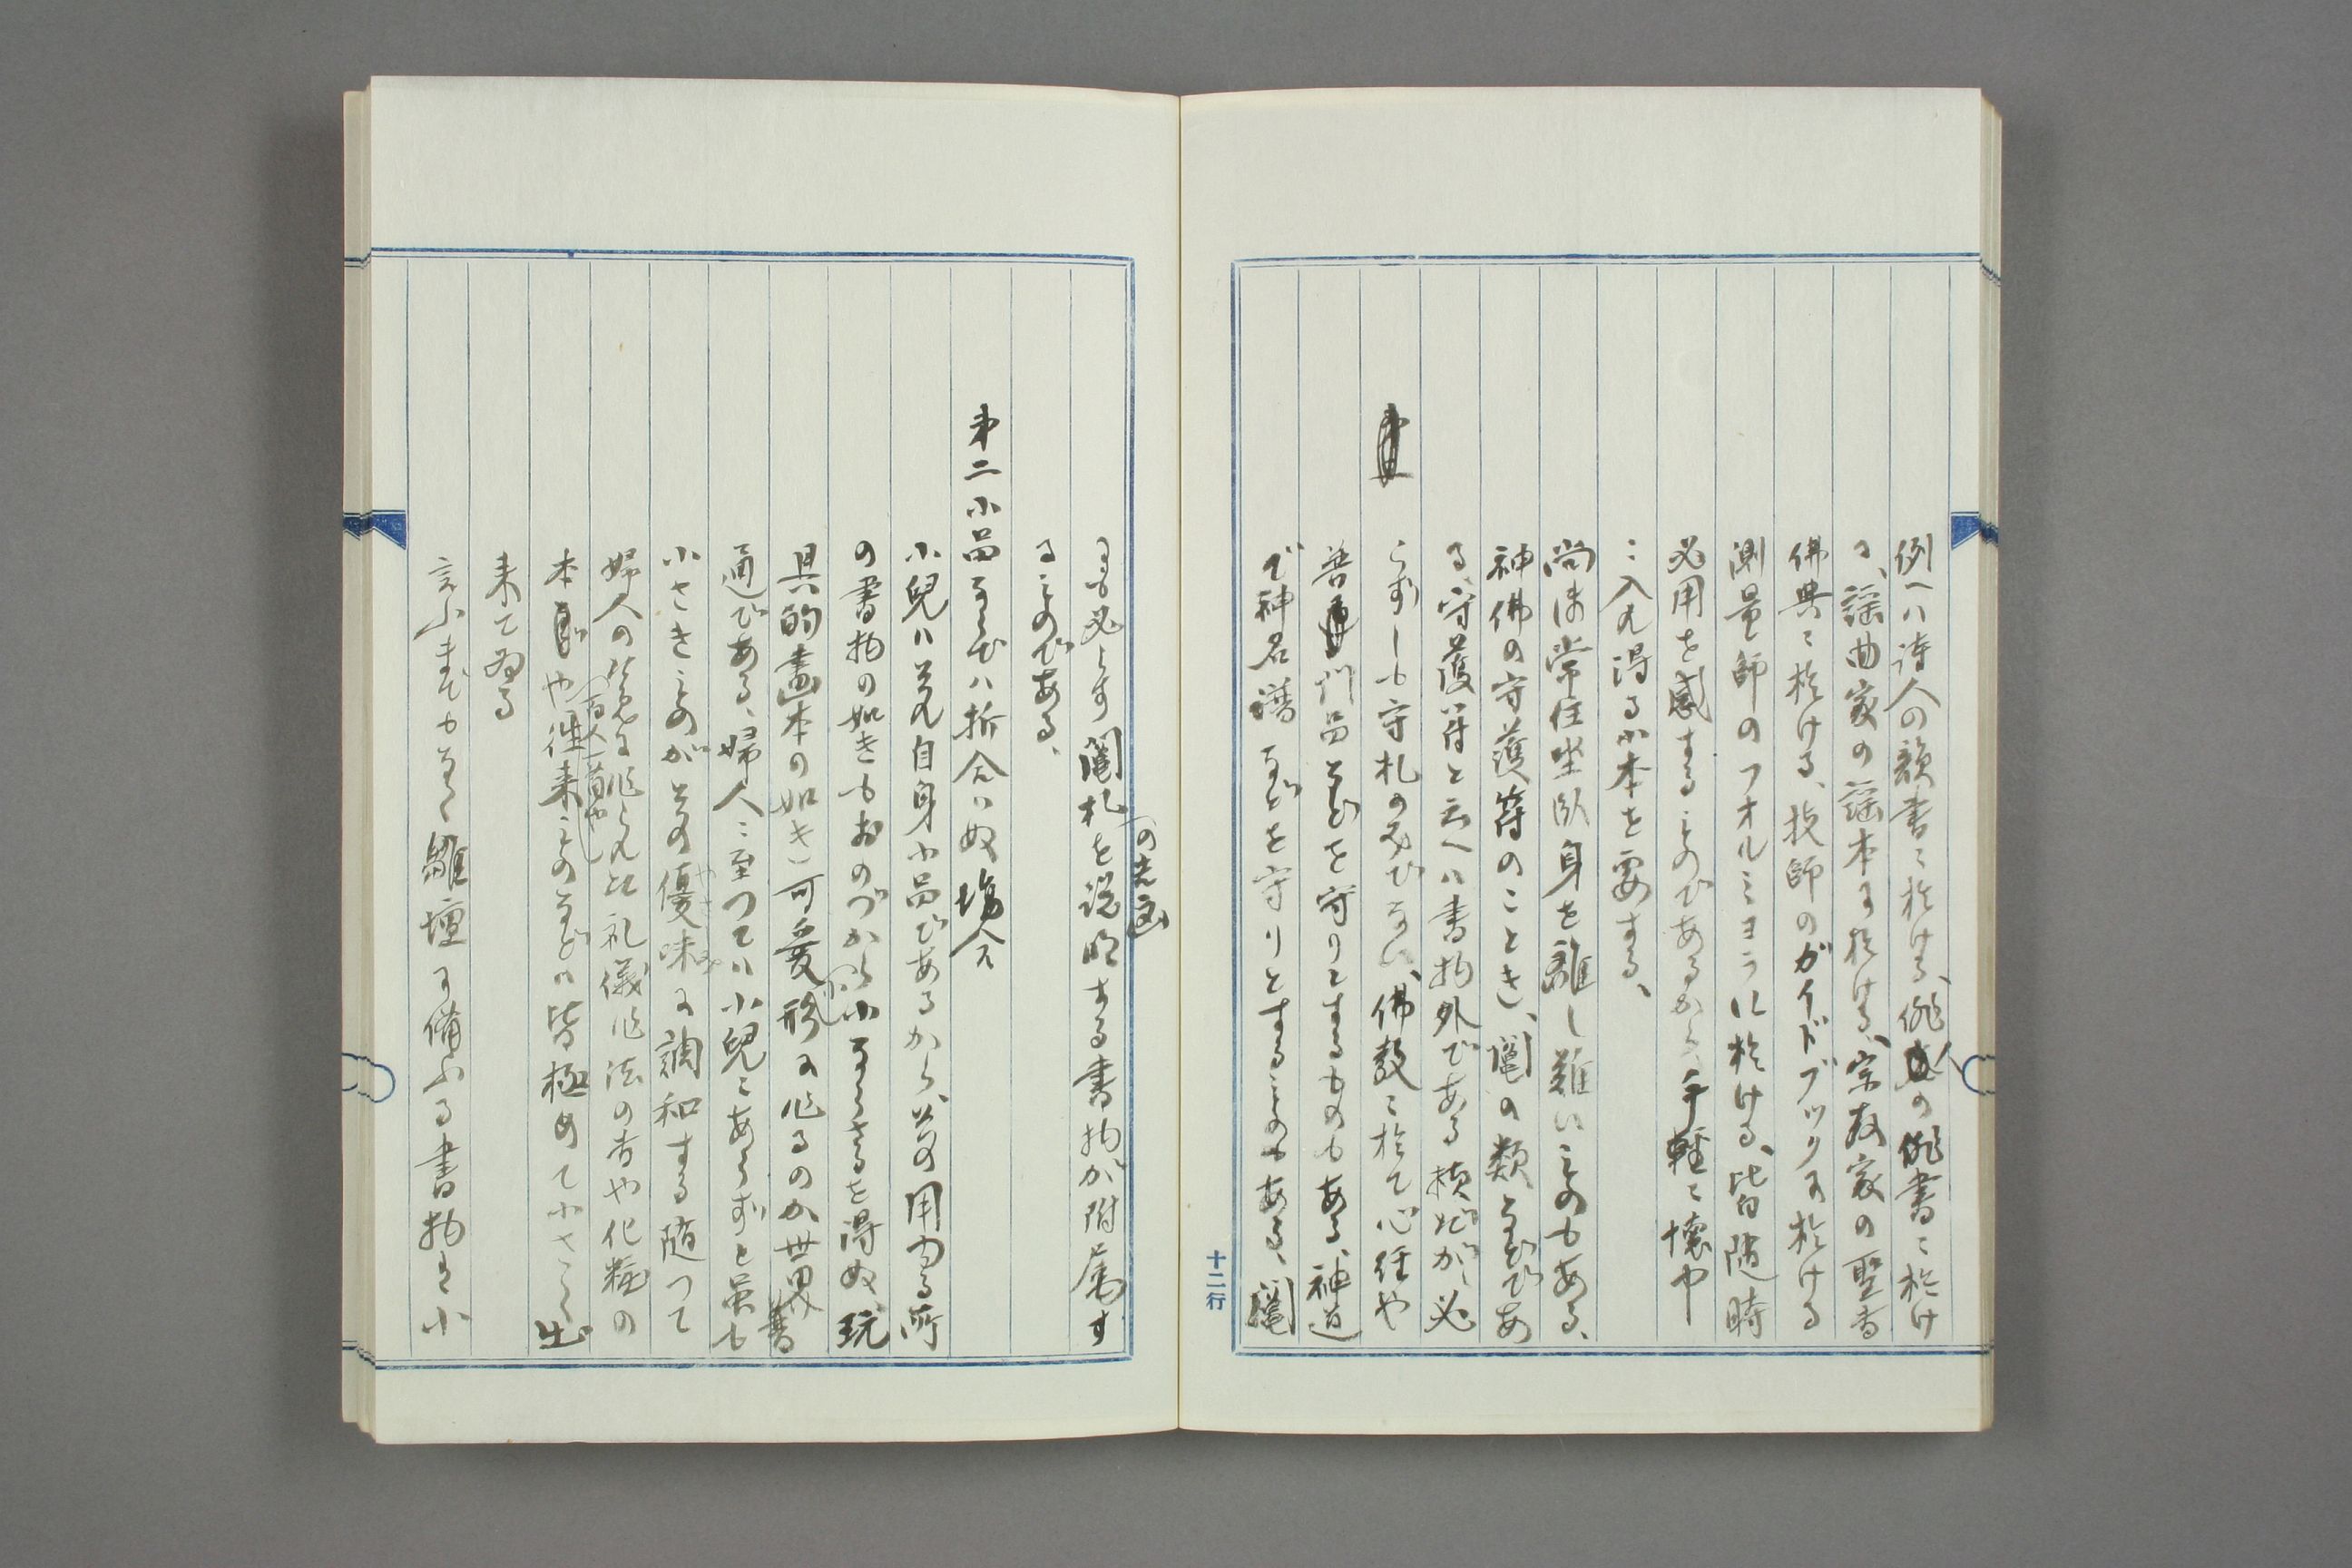 例へハ詩人の韻書ニ於ける、俳人の俳書ニ於け
る、謡曲家の謡本に於ける、宗教家の聖書
佛典ニ於ける、技師のガイドブックに於ける
測量師のフオルミヨラに於ける、皆随時
必用を感するものであるから、手軽ニ懐中
ニ入れ得る小本を要する、
尚ほ常住坐臥身を離し難いものもある、
神佛の守護符のことき、鬮の類などであ
る、守護符と云へハ書物外である様だが、必
らずしも守札のみでない、佛教ニ於て心経や
普門品などを守りとするものもある、神道
で神名譜などを守りとするものもある、鬮
にも必らず鬮札の文句を説明する書物が附属す
るものである、
第二 小品ならでハ折合ハぬ場合
小兒ハそれ自身小品であるから、その用ゐる所
の書物の如きもおのづから小ならさるを得ぬ、玩
具的畫本の如き可愛い形に作るのか世界普
通である、婦人ニ至つてハ小兒ニあらずと虽も
小さきものがその優味に調和する随つて
婦人の為に作られた礼儀作法の書や化粧の
本や百人一首や往来ものなどハ皆極めて小さく出
来て居る
言ふまでもなく雛壇に備ふる書物は小
十二行